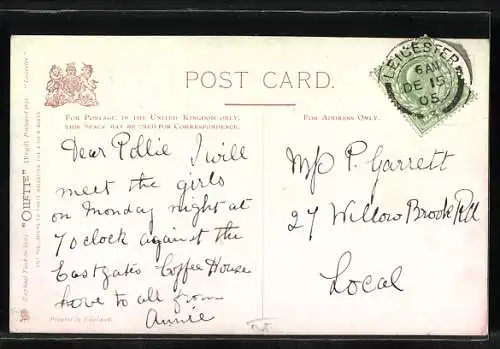 POST CARD.
FOR POSTAGE IN THE UNITED KINGDOM ONLY,
THIS SPACE MAY BE USED FOR CORRESPONDENCE.
FOR ADDRESS ONLY.
LEICESTER
DE 15
05
Dear Pollie I will
meet the girls
on Monday night at
7 oclock against the
Eastgates Coffee House
love to all from
Annie
P. Garrett
27 Willow Brook Rd
Local
Printed in England.
Raphael Tuck & Sons' "OILETTE"